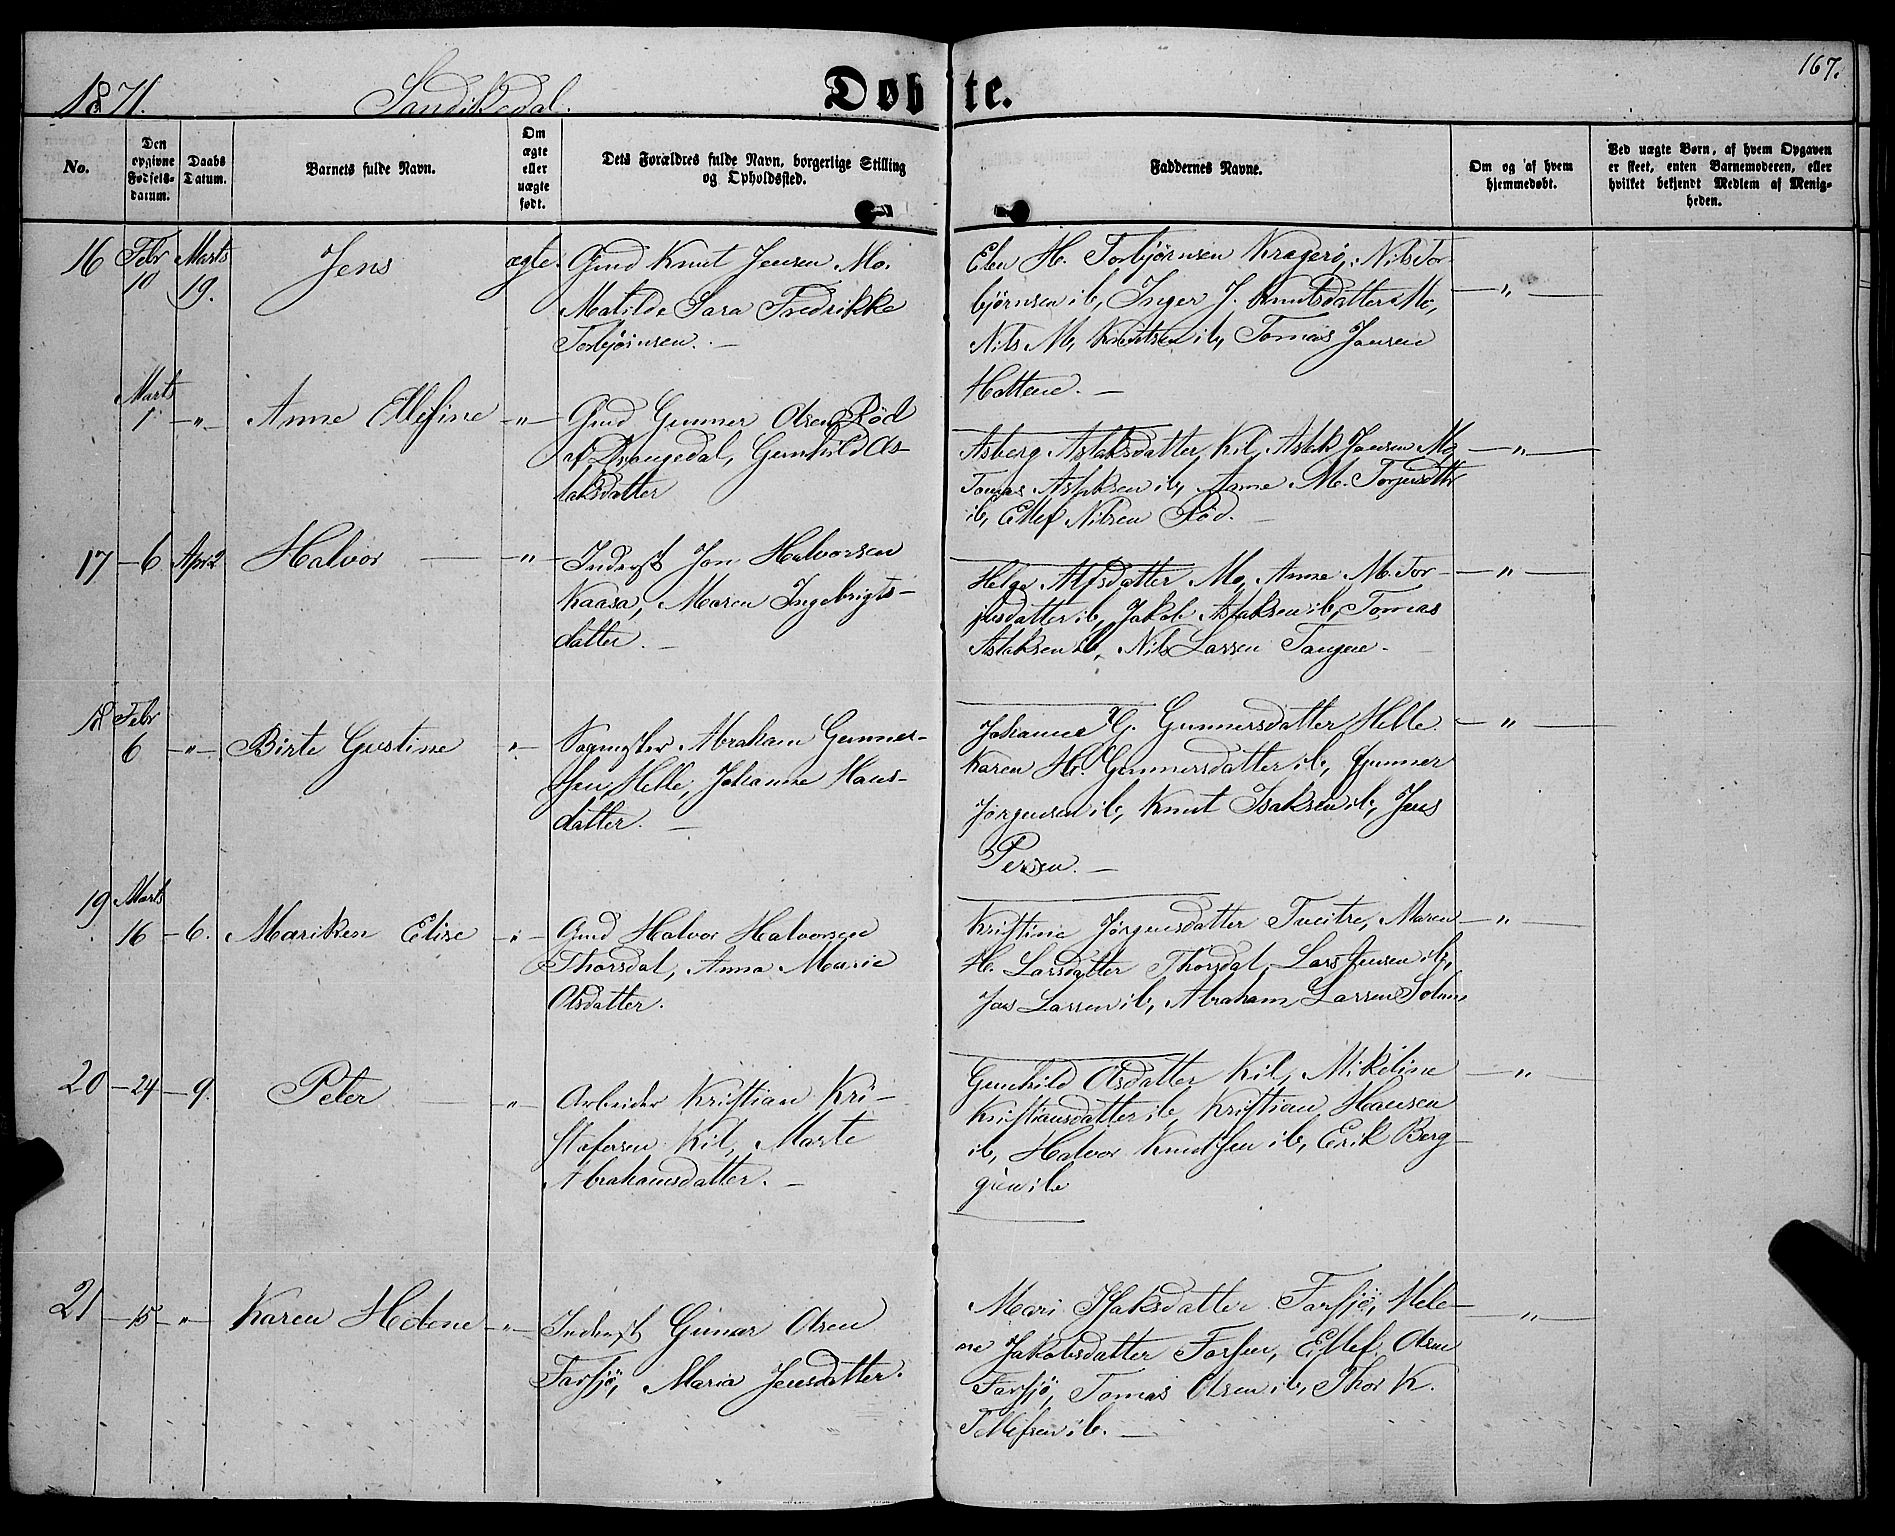 167.
1871. Sandökedal. Døbte.
No.
Den opgivne Fødsels-datum.
Daabs Datum.
Barnets fulde Navn.
Om ægte eller uægte født.
Dets Forældres fulde Navn, borgerlige Stilling og Opholdssted.
Faddernes Navne.
Om og af hvem hjemmedøbt.
Ved uægte Børn, af hvem Opgaven er skeet, enten Barnemoderen, eller hvilket bekjendt Medlem af Menigheden.
16 Febr 10 Marts 19. Jens ægte.
Gmd Knut Jensen Mo.
Matilde Sara Fredrikke
Torbjørnsen. —
H. Torbjørnsen Kragerø, Nils Tor-
bjørnsen ib, Inger J. Knutsdatter Mo,
Nils M. Knutsen ib, Tomas Jensen
Hattene. —
Marts 1 —"— Anne Ellefine —"—
Gmd Gunner Olsen Rød
af Drangedal, Gunhild As-
laksdatter
Asberg Aslaksdatter Kil, Aslak Jensen Mo, —"—
Tomas Aslaksen ib, Anne M. Torjusdttr
ib, Ellef Nilsen Rød. —
17 — 6 Apr 2 Halvor — —"—
Inderst Jon Halvorsen
Kaasa, Maren Ingebrigts-
datter. —
Helge Alfsdatter Mo, Anne M. Tor- —"—
jusdatter ib, Jakob Aslaksen ib, Tomas
Aslaksen ib, Nils Larsen Tangen -
18 Febr 6 —"— Birte Gustine "
Sagmester Abraham Gunner-
sen Helle, Johanne Hans-
datter. —
Johanne G. Gunnersdatter Helle —"—
Karen H. Gunnersdatter ib, Gunner
Jørgensen ib, Knut Isaksen ib, Jens
Persen. —
19 Marts 16 — 6. Mariken Elise —"—
Gmd Halvor Halvorsen
Thorsdal, Anna Marie
Olsdatter.
Kristine Jørgensdatter Tveitre, Maren —"—
H. Larsdatter Thorsdal, Lars Jensen ib,
Jens Larsen ib, Abraham Larsen
20 — 24 — 9. Peter — "
Arbeider Kristian Kri-
stofersen Kil, Marte
Abrahamsdatter. —
Gunhild Olsdatter Kil, Mikeline —"—
Kristiansdatter ib, Kristian Hansen
ib, Halvor Knutsen ib, Erik Berg-
gren ib
21 — 15 —"— Karen Helene —"—
Inderst Gunar Olsen
Farsjø, Maria Jensdatter.
Mari Isaksdatter Farsjø, Hele- —"—
ne Jakobsdatter Farsjø, Ellef Olsen
Farsjø, Tomas Olsen ib, Thor K.
Tellefsen ib. —